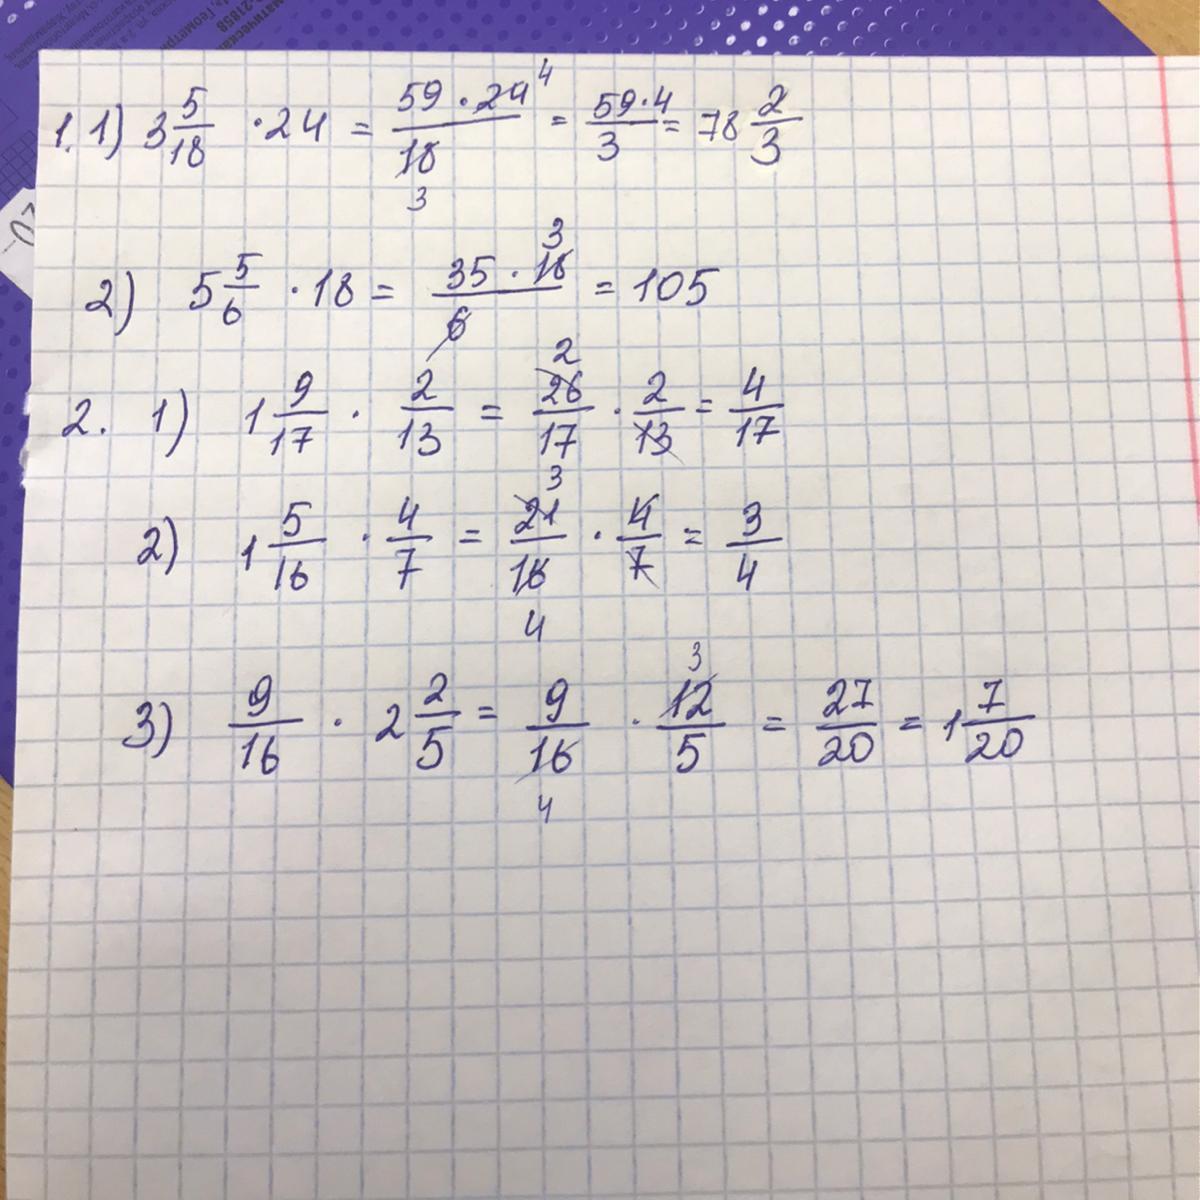 1. 1) 3 5/18 · 24 = 59 · 24 4 / 18 3 = 59·4/3 = 78 2/3
2) 5 5/6 · 18 = 35 · 18 3 / 6 = 105
2. 1) 1 9/17 · 2/13 = 26 2 / 17 · 2/13 = 4/17
2) 1 5/16 · 4/7 = 21 3 / 16 4 · 4/7 = 3/4
3) 9/16 · 2 2/5 = 9/16 4 · 12 3 / 5 = 27/20 = 1 7/20